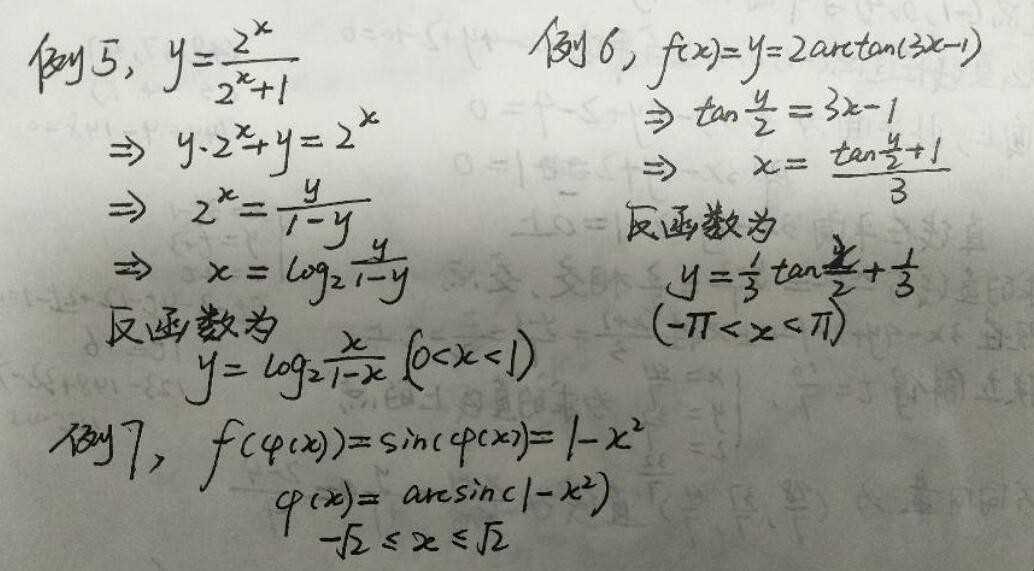 例5, y = 2^x / (2^x+1)
⇒ y·2^x + y = 2^x
⇒ 2^x = y / (1-y)
⇒ x = log₂ y/(1-y)
反函数为
y = log₂ x/(1-x) (0<x<1)
例6, f(x) = y = 2arctan(3x-1)
⇒ tan y/2 = 3x-1
⇒ x = (tan y/2 + 1) / 3
反函数为
y = 1/3 tan x/2 + 1/3
(-π < x < π)
例7, f(φ(x)) = sin(φ(x)) = 1-x²
φ(x) = arcsin(1-x²)
-√2 ≤ x ≤ √2